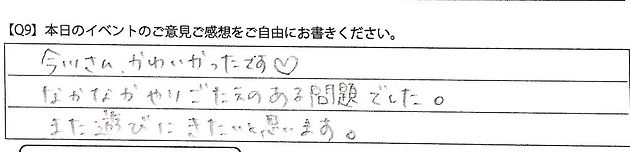 【Q9】本日のイベントのご意見ご感想をご自由にお書きください。
今川さん、かわいかったです♡
なかなかやりごたえのある問題でした。
また遊びにきたいと思います。